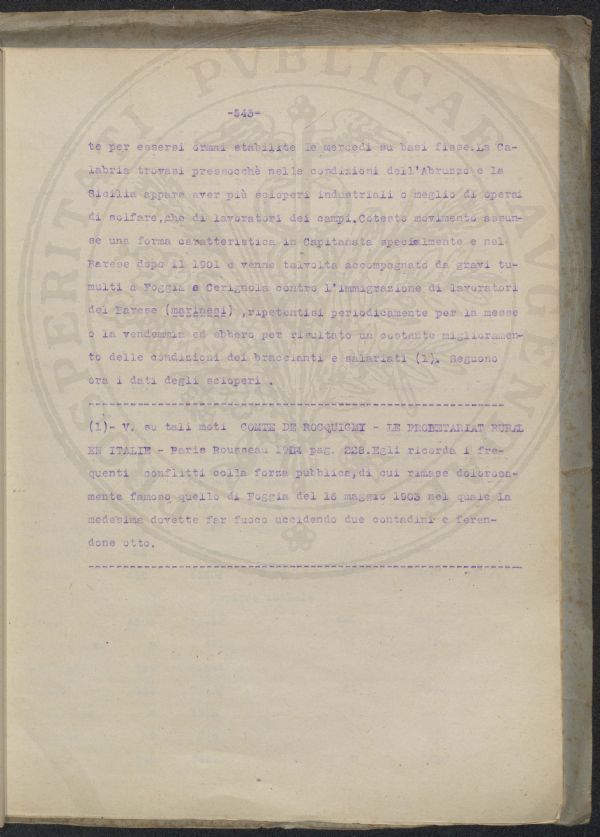 -543-
te per essersi ormai stabilite le mercedi su basi fisse.La Ca-
labria trovasi pressocchè nelle condizioni dell'Abruzzo e la
Sicilia appare aver più scioperi industriali o meglio di operai
di solfare,che di lavoratori dei campi.Cotesto movimento assun-
se una forma caratteristica in Capitanata specialmente e nel
Barese dopo il 1901 e venne talvolta accompagnato da gravi tu-
multi a Foggia a Cerignola contro l'immigrazione di lavoratori
del Barese (marinesi) ,ripetentisi periodicamente per la messe
o la vendemmia ed ebbero per risultato un costante miglioramen-
to delle condizioni dei braccianti e salariati (1). Seguono
ora i dati degli scioperi .
(1)- V. su tali moti COMTE DE ROCQUIGNY - LE PROLETARIAT RURAL
EN ITALIE - Paris Rousseau pag. 228.Egli ricorda i fre-
quenti conflitti colla forza pubblica,di cui rimase dolorosa-
mente famoso quello di Foggia del 16 maggio 1903 nel quale la
medesima dovette far fuoco uccidendo due contadini e feren-
done otto.